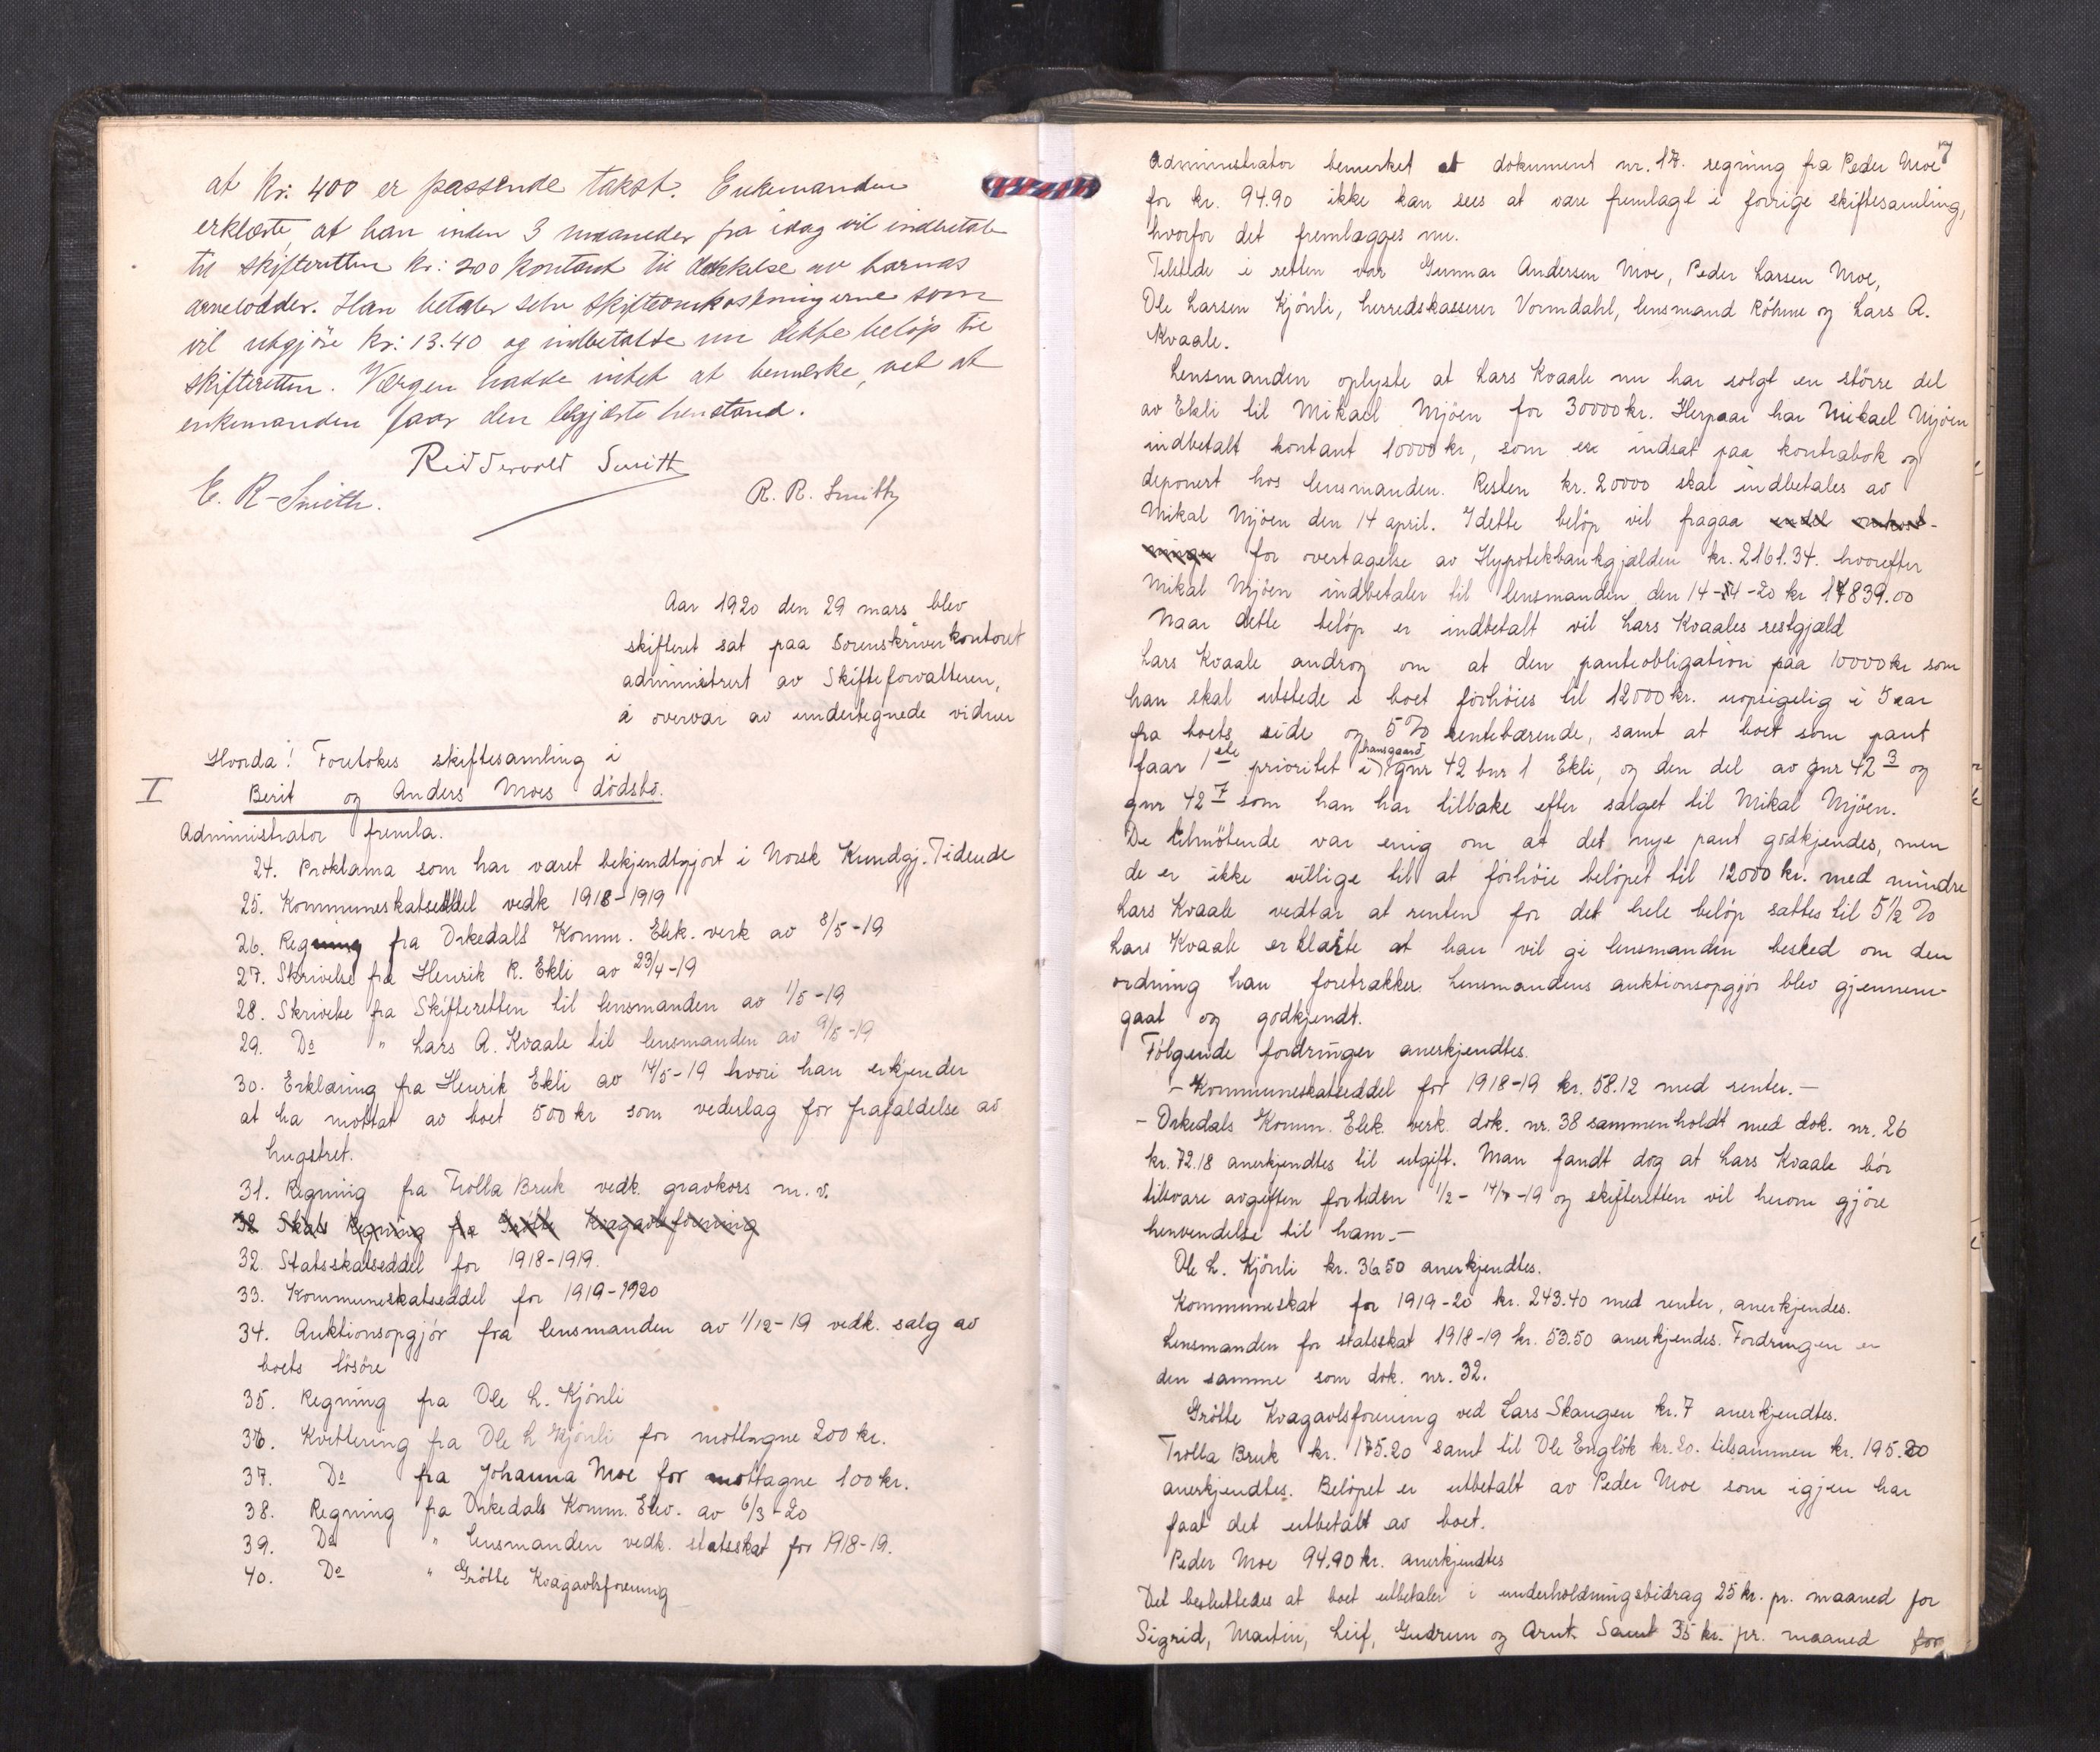 at Kr: 400 er passende takst. Enkemanden
erklærte at han inden 3 maaneder fra idag vil indbetale
til skifteretten kr: 200 kontant til dækkelse av barnas
arvelodder. Han betaler selv skifteomkostningerne som
vil utgjöre kr: 13.40 og indbetalte nu dette belöp til
skifteretten. Værgen hadde intet at bemerke, ved at
enkemanden faar den begjærte henstand.
Smith
E. R. Smith. R. R. Smith
Aar 1920 den 29 mars blev
skifteret sat paa Sorenskriverkontoret
administrert av Skifteforvalteren,
i overvær av undertegnede vidner
Hvorda! Foretokes skiftesamling i
I Berit og Anders Moes dödsbo.
Administrator fremla.
24. Proklama som har været bekjendtgjort i Norsk Kundgj. Tidende
25. Kommuneskatseddel vedk 1918-1919
26. Regning fra Orkedals Komm. Elek. verk av 8/5-19
27. Skrivelse fra Henrik R. Ekli av 23/4-19
28. Skrivelse fra Skifteretten til lensmanden av 1/5-19
29. Do " Lars A. Kvaale til lensmanden av 9/5-19
30. Erklæring fra Henrik Ekli av 14/5-19 hvori han erkjender
at ha mottat av boet 500 kr som vederlag for frafaldelse av
hugstret.
31. Regning fra Trolla Bruk vedk. gravkors m. v.
32 Skats Regning fra Grötte Kvægavlsforening
32. Statsskatseddel for 1918-1919.
33. Kommuneskatseddel for 1919-1920
34. Auktionsopgjör fra lensmanden av 1/12-19 vedk. salg av
boets lösöre
35. Regning fra Ole L. Kjönli
36. Kvittering fra Ole L Kjönli for mottagne 200 kr.
37. Do fra Johanna Moe for mottagne 100 kr.
38. Regning fra Orkedals Komm. Elev. av 6/3-20
39. Do " lensmanden vedk. statsskat for 1918-19.
40. Do " Grötte Kvægavlsforening
7
Administrator bemerket at dokument nr. 17. regning fra Peder Moe
for kr. 94.90 ikke kan sees at være fremlagt i forrige skiftesamling,
hvorfor det fremlægges nu.
Tilstede i retten var Gunnar Andersen Moe, Peder Larsen Moe,
Ole Larsen Kjönli, herredskasserer Vormdahl, lensmand Röhme og Lars A.
Kvaale.
Lensmanden oplyste at Lars Kvaale nu har solgt en större del
av Ekli til Mikael Mjöen for 30000 kr. Herpaa har Mikael Mjöen
indbetalt kontant 10000 kr, som er indsat paa kontrabok og
deponert hos lensmanden. Resten kr. 20000 skal indbetales av
Mikal Mjöen den 14 april. I dette belöp vil fragaa endel omkost-
ninger for overtagelse av Hypotekbankgjælden kr. 2161.34. hvorefter
Mikal Mjöen indbetaler til lensmanden den 14-4-20 kr 17839.00
Naar dette belöp er indbetalt vil Lars Kvaales restgjæld
Lars Kvaale androg om at den panteobligation paa 10000 kr som
han skal utstede i boet forhöies til 12000 kr. uopsigelig i 5 aar
fra boets side og 5 % rentebærende, samt at boet som pant
faar 1ste prioritet i gnr 42 bnr 1 Ekli, og den del av gnr 42 3 og
gnr 42 7 som han har tilbake efter salget til Mikal Mjöen.
De tilmötende var enig om at det nye pant godkjendes, men
de er ikke villige til at forhöie belöpet til 12000 kr. med mindre
Lars Kvaale vedtar at renten for det hele belöp sættes til 5 1/2 %
Lars Kvaale erklærte at han vil gi lensmanden besked om den
ordning han foretrækker. Lensmandens auktionsopgjör blev gjennem-
gaat og godkjendt.
Fölgende fordringer anerkjendtes.
- Kommuneskatseddel for 1918-19 kr. 58.12 med renter.-
- Orkedals Komm. Elek. verk. dok. nr. 38 sammenholdt med dok. nr. 26
kr. 72.18 anerkjendtes til utgift. Man fandt dog at Lars Kvaale bör
tilsvare avgiften for tiden 1/2- -19 og skifteretten vil herom gjöre
henvendelse til ham.-
Ole L. Kjönli kr. 36.50 anerkjendtes.
Kommuneskat for 1919-20 kr. 243.40 med renter, anerkjendes.
Lensmanden for statsskat 1918-19 kr. 53.50 anerkjendes. Fordringen er
den samme som dok. nr. 32.
Grötte Kvægavlsforening ved Lars Skaugen kr. 7 anerkjendtes.
Trolla Bruk kr. 175.20 samt til Ole Englök kr. 20. tilsammen kr. 195.20
anerkjendtes. Belöpet er utbetalt av Peder Moe som igjen har
faat det utbetalt av boet.
Peder Moe 94.90 kr. anerkjendtes
Det besluttedes at boet utbetaler i underholdningsbidrag 25 kr. pr. maaned for
Sigrid, Martin, Leif, Gudrun og Arnt. Samt 35 kr. pr. maaned for